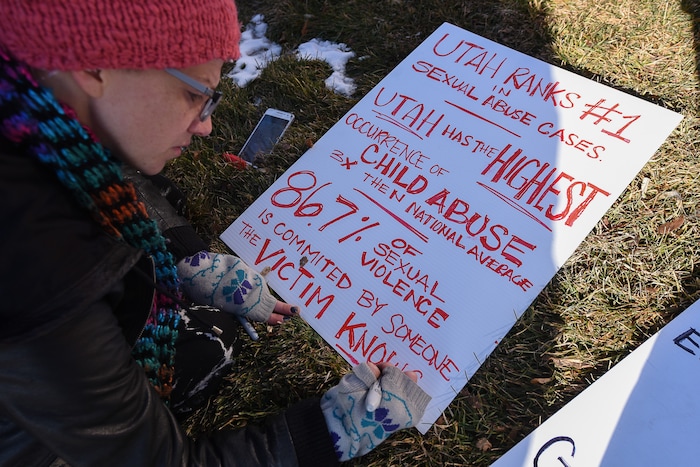 UTAH RANKS #1
IN
SEXUAL ABUSE CASES.
UTAH HAS THE HIGHEST
OCCURRENCE OF
CHILD ABUSE
3X THEN NATIONAL AVERAGE
86.7% OF
SEXUAL
VIOLENCE
IS COMMITED BY SOMEONE
THE VICTIM KNOWS
E
G